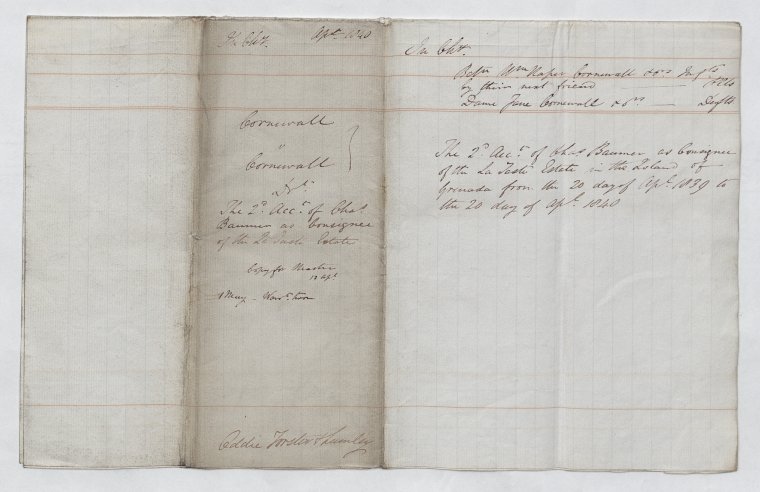 In Chy. Apl. 1840
Cornewall
v
Cornewall
The 2d. Accт. of Chas.
Baumer as Consignee
of the La Taste Estate
Copy for Master
1 May
Addie Forster &
In Chy.
Betn. Wm. Naper Cornewall & ors Infts
by their next friend Plts
Dame Jane Cornewall & ors Defts
The 2d. Acct. of Chas. Baumer as Consignee
of the La Taste Estate in the Island of
Grenada from the 20 day of Apl. 1839 to
the 20 day of Apl. 1840